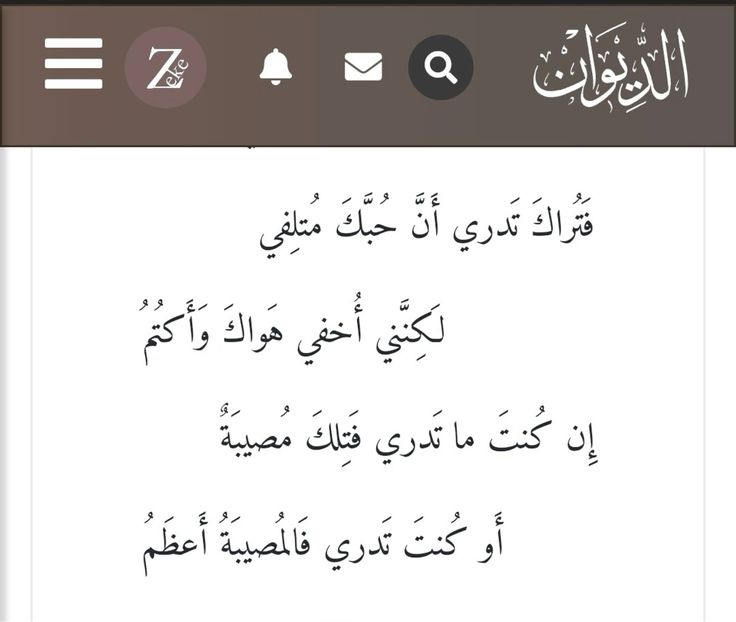 الدِّيوَان
Zeke
فَتُراكَ تَدري أَنَّ حُبَّكَ مُتلِفي
لَكِنَّني أُخفي هَواكَ وَأَكتُمُ
إِن كُنتَ ما تَدري فَتِلكَ مُصيبَةٌ
أَو كُنتَ تَدري فَالمُصيبَةُ أَعظَمُ